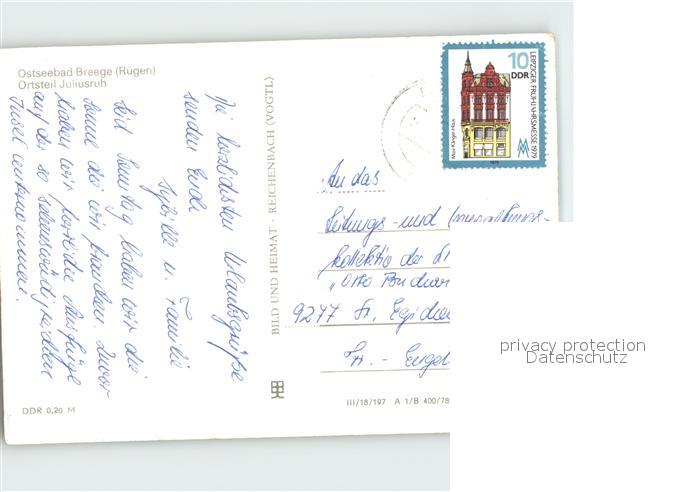 Ostseebad Breege (Rügen)
Ortsteil Juliusruh
Die herzlichsten Urlaubsgrüße
senden Euch
Sybille u. Familie
Seit Sonntag haben wir die
Sonne die wir brauchen. Zuvor
haben wir Ausflüge
auf der so sehenswürdigkeiten
Insel unternommen.
DDR 0,20 M
BILD UND HEIMAT · REICHENBACH (VOGTL)
III/18/197 A 1/B 400/78
10
DDR
LEIPZIGER FRÜHJAHRSMESSE 1979
Max-Klinger-Haus
1979
An das
Leitungs- und
kollektiv der
"Otto
9277 St. Egidien
Str.-Engel
privacy protection
Datenschutz